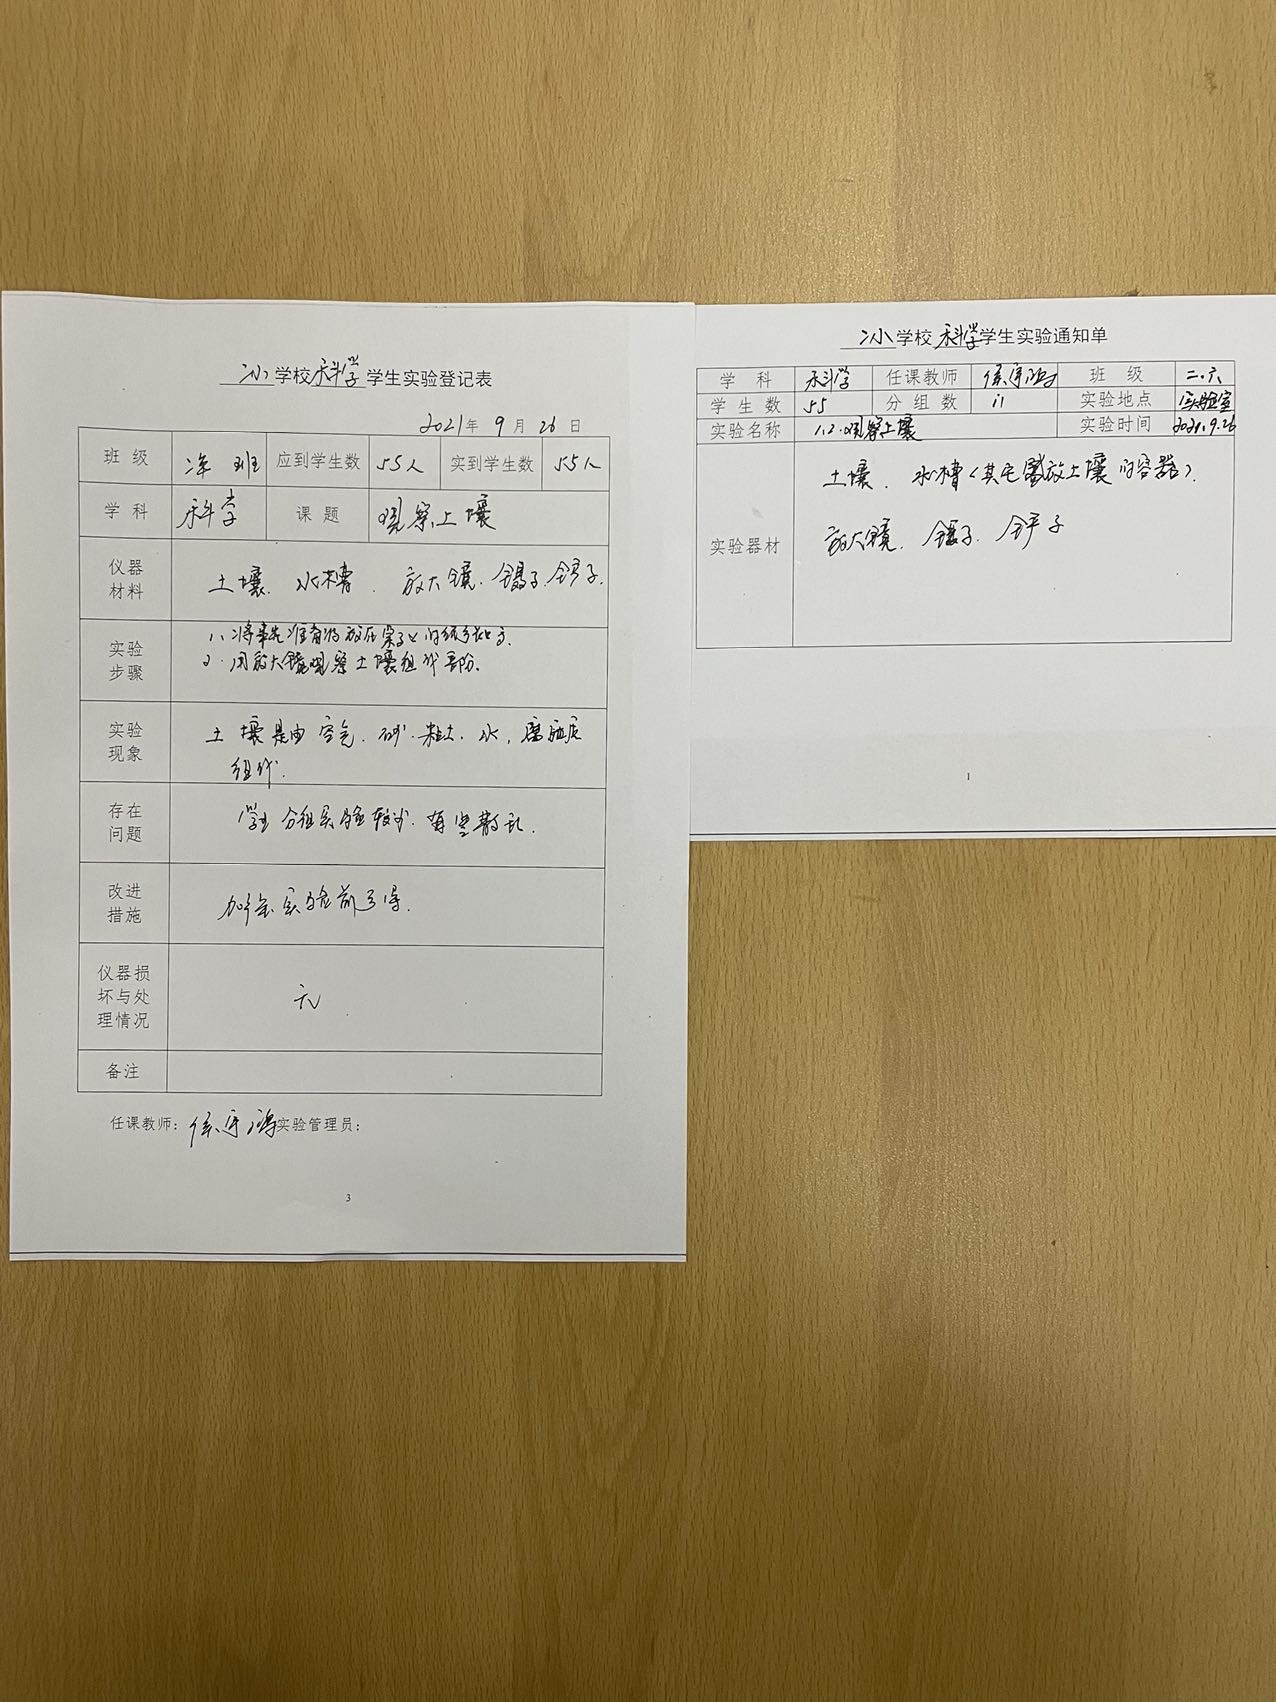 小学校科学学生实验登记表
2021年 9月 26日
班 级 班 应到学生数 55人 实到学生数 55人
学 科 科学 课 题 观察土壤
仪器材料 土壤、水槽、放大镜、镊子、铲子.
实验步骤
1、将事先准备的放在桌子上的
2.用放大镜观察土壤组成部分.
实验现象 土壤是由空气、砂、粘土、水、腐殖质
组成.
存在问题 学生分组实验较少,有些散乱.
改进措施 加强实验前
仪器损坏与处理情况 无
备注
任课教师: 实验管理员:
3
小学校科学学生实验通知单
学 科 科学 任课教师 班 级 二.六
学 生 数 55 分 组 数 11 实验地点 实验室
实验名称 1.2.观察土壤 实验时间 2021.9.26
实验器材 土壤、水槽(其它放土壤的容器).
放大镜、镊子、铲子
1